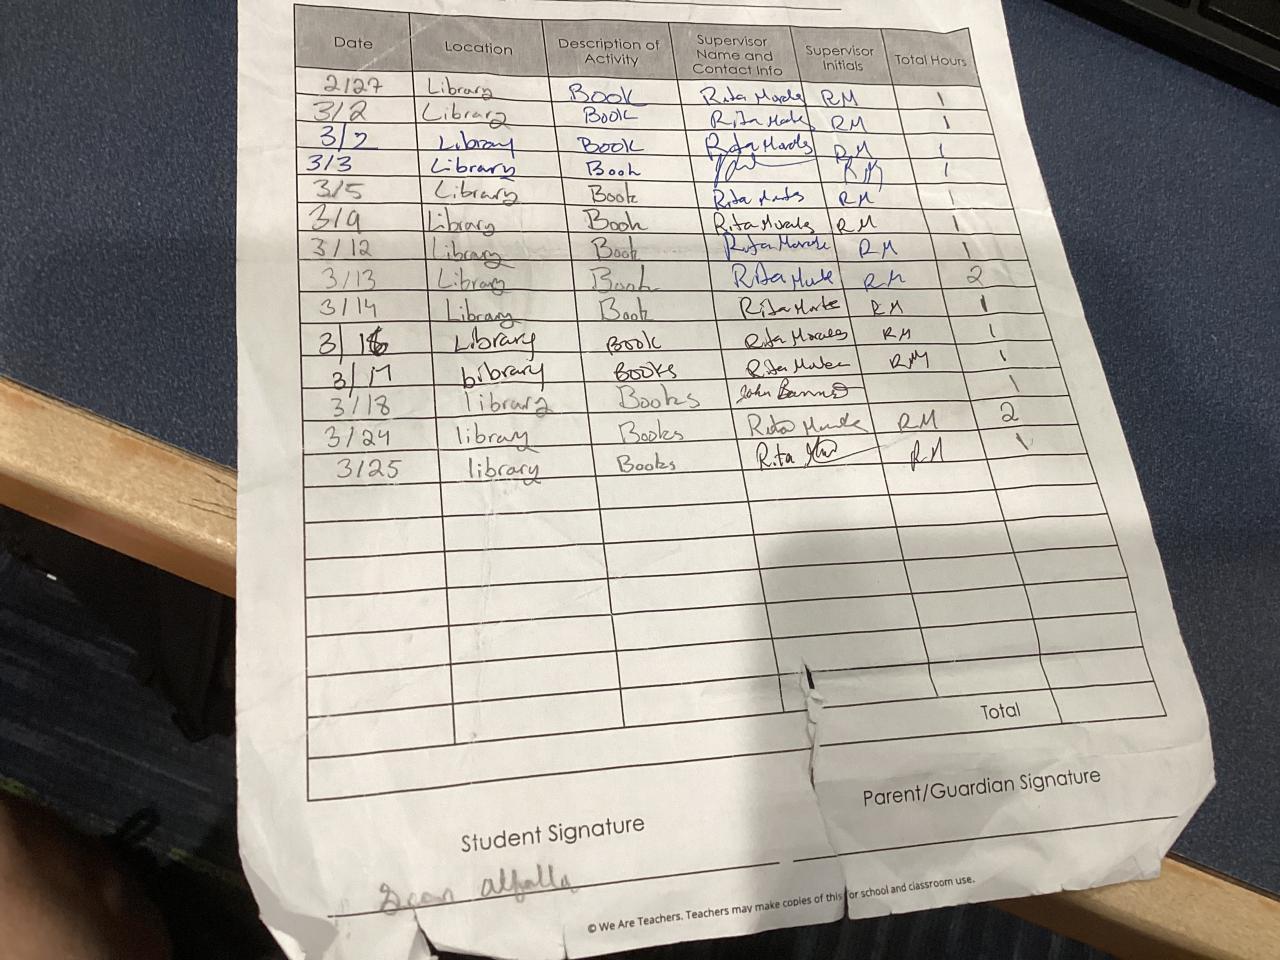 Date Location Description of Activity Supervisor Name and Contact Info Supervisor Initials Total Hours
2/27 Library Book Rita RM 1
3/2 Library Book Rita RM 1
3/2 Library Book Rita RM 1
3/3 Library Book RM 1
3/5 Library Book Rita RM 1
3/9 Library Book Rita Morales RM 1
3/12 Library Book Rita RM 1
3/13 Library Book Rita RM 2
3/14 Library Book Rita RM 1
3/16 Library Book Rita Morales RM 1
3/17 Library Books Rita RM 1
3/18 library Books John 1
3/24 library Books Rita RM 2
3/25 library Books Rita RM 1
Total
Parent/Guardian Signature
Student Signature
© We Are Teachers. Teachers may make copies of this for school and classroom use.